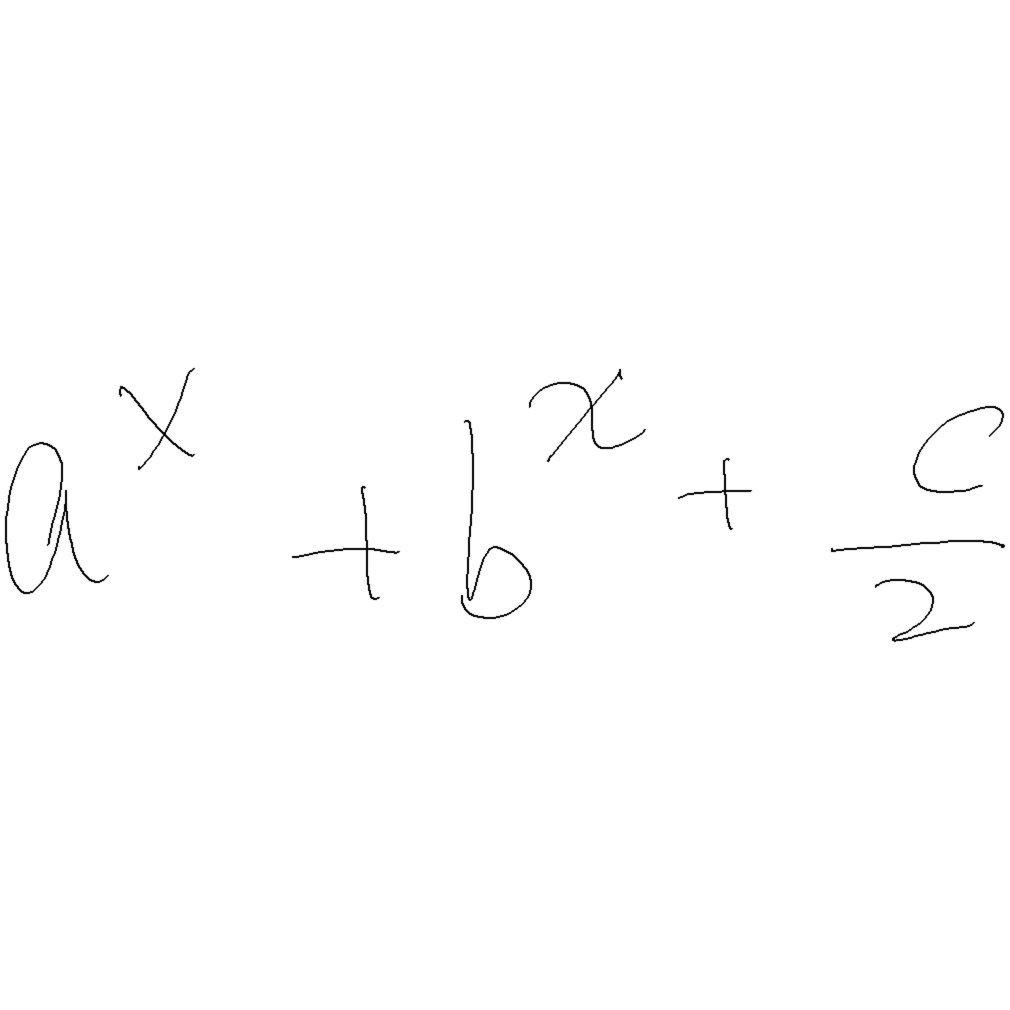 a^x + b^x + c/2